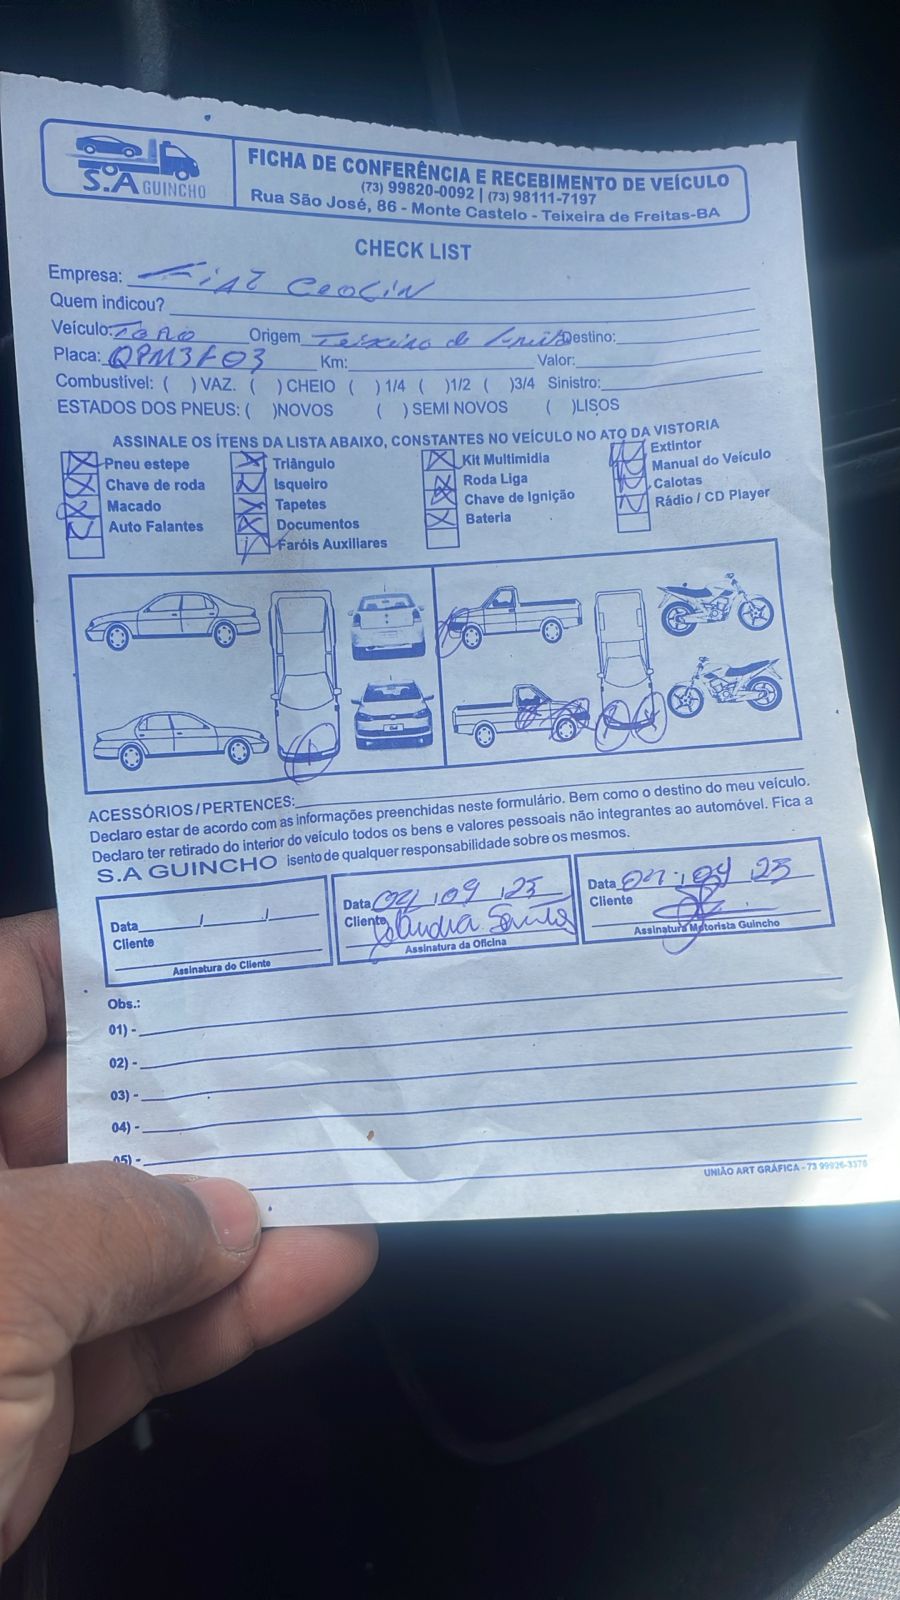 S.A GUINCHO
FICHA DE CONFERÊNCIA E RECEBIMENTO DE VEÍCULO
(73) 99820-0092 | (73) 98111-7197
Rua São José, 86 - Monte Castelo - Teixeira de Freitas-BA
CHECK LIST
Empresa: Fiat Ceolin
Quem indicou?
Veículo: Toro Origem Teixeira de Destino:
Placa: Km: Valor:
Combustível: ( ) VAZ. ( ) CHEIO ( ) 1/4 ( )1/2 ( )3/4 Sinistro:
ESTADOS DOS PNEUS: ( )NOVOS ( ) SEMI NOVOS ( )LISOS
ASSINALE OS ÍTENS DA LISTA ABAIXO, CONSTANTES NO VEÍCULO NO ATO DA VISTORIA
Pneu estepe Triângulo Kit Multimidia Extintor
Chave de roda Isqueiro Roda Liga Manual do Veículo
Macado Tapetes Chave de Ignição Calotas
Auto Falantes Documentos Bateria Rádio / CD Player
Faróis Auxiliares
ACESSÓRIOS/PERTENCES:
Declaro estar de acordo com as informações preenchidas neste formulário. Bem como o destino do meu veículo.
Declaro ter retirado do interior do veículo todos os bens e valores pessoais não integrantes ao automóvel. Fica a
S.A GUINCHO isento de qualquer responsabilidade sobre os mesmos.
Data / /
Cliente
Assinatura do Cliente
Data 09
Cliente
Assinatura da Oficina
Data 09
Cliente
Assinatura Motorista Guincho
Obs.:
01) -
02) -
03) -
04) -
05) -
UNIÃO ART GRÁFICA - 73